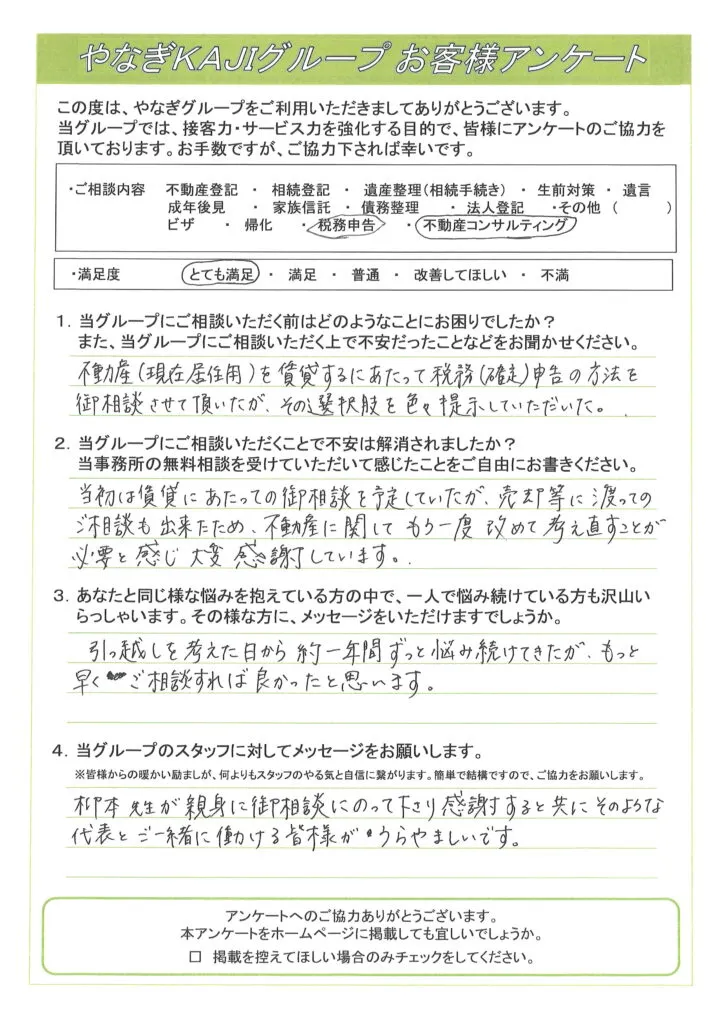 やなぎKAJIグループ お客様アンケート
この度は、やなぎグループをご利用いただきましてありがとうございます。
当グループでは、接客力・サービス力を強化する目的で、皆様にアンケートのご協力を
頂いております。お手数ですが、ご協力下されば幸いです。
・ご相談内容 不動産登記 ・ 相続登記 ・ 遺産整理(相続手続き) ・ 生前対策 ・ 遺言
成年後見 ・ 家族信託 ・ 債務整理 ・ 法人登記 ・その他 ( )
ビザ ・ 帰化 ・ 税務申告 ・ 不動産コンサルティング
・満足度 とても満足 ・ 満足 ・ 普通 ・ 改善してほしい ・ 不満
1. 当グループにご相談いただく前はどのようなことにお困りでしたか?
また、当グループにご相談いただく上で不安だったことなどをお聞かせください。
不動産(現在居住用)を賃貸するにあたって税務(確定)申告の方法を
御相談させて頂いたが、その選択肢を色々提示していただいた。
2. 当グループにご相談いただくことで不安は解消されましたか?
当事務所の無料相談を受けていただいて感じたことをご自由にお書きください。
当初は賃貸にあたっての御相談を予定していたが、売却等に渡っての
ご相談も出来たため、不動産に関してもう一度改めて考え直すことが
必要と感じ大変感謝しています。
3. あなたと同じ様な悩みを抱えている方の中で、一人で悩み続けている方も沢山い
らっしゃいます。その様な方に、メッセージをいただけますでしょうか。
引っ越しを考えた日から約一年間ずっと悩み続けてきたが、もっと
早くご相談すれば良かったと思います。
4. 当グループのスタッフに対してメッセージをお願いします。
※皆様からの暖かい励ましが、何よりもスタッフのやる気と自信に繋がります。簡単で結構ですので、ご協力をお願いします。
柳本先生が親身に御相談にのって下さり感謝すると共にそのような
代表とご一緒に働ける皆様がうらやましいです。
アンケートへのご協力ありがとうございます。
本アンケートをホームページに掲載しても宜しいでしょうか。
□ 掲載を控えてほしい場合のみチェックをしてください。